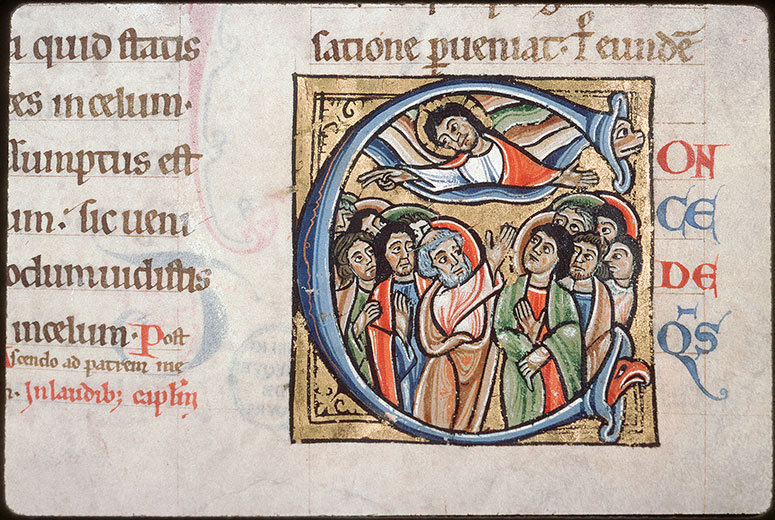 a quid statis
ces in celum.
ssumptus est
um. sic veni
odum uidistis
in celum. Post
Ascendo ad patrem me
Jn laudib; capl'm
satione pueniat. P eundē
C
ON
CE
DE
QS